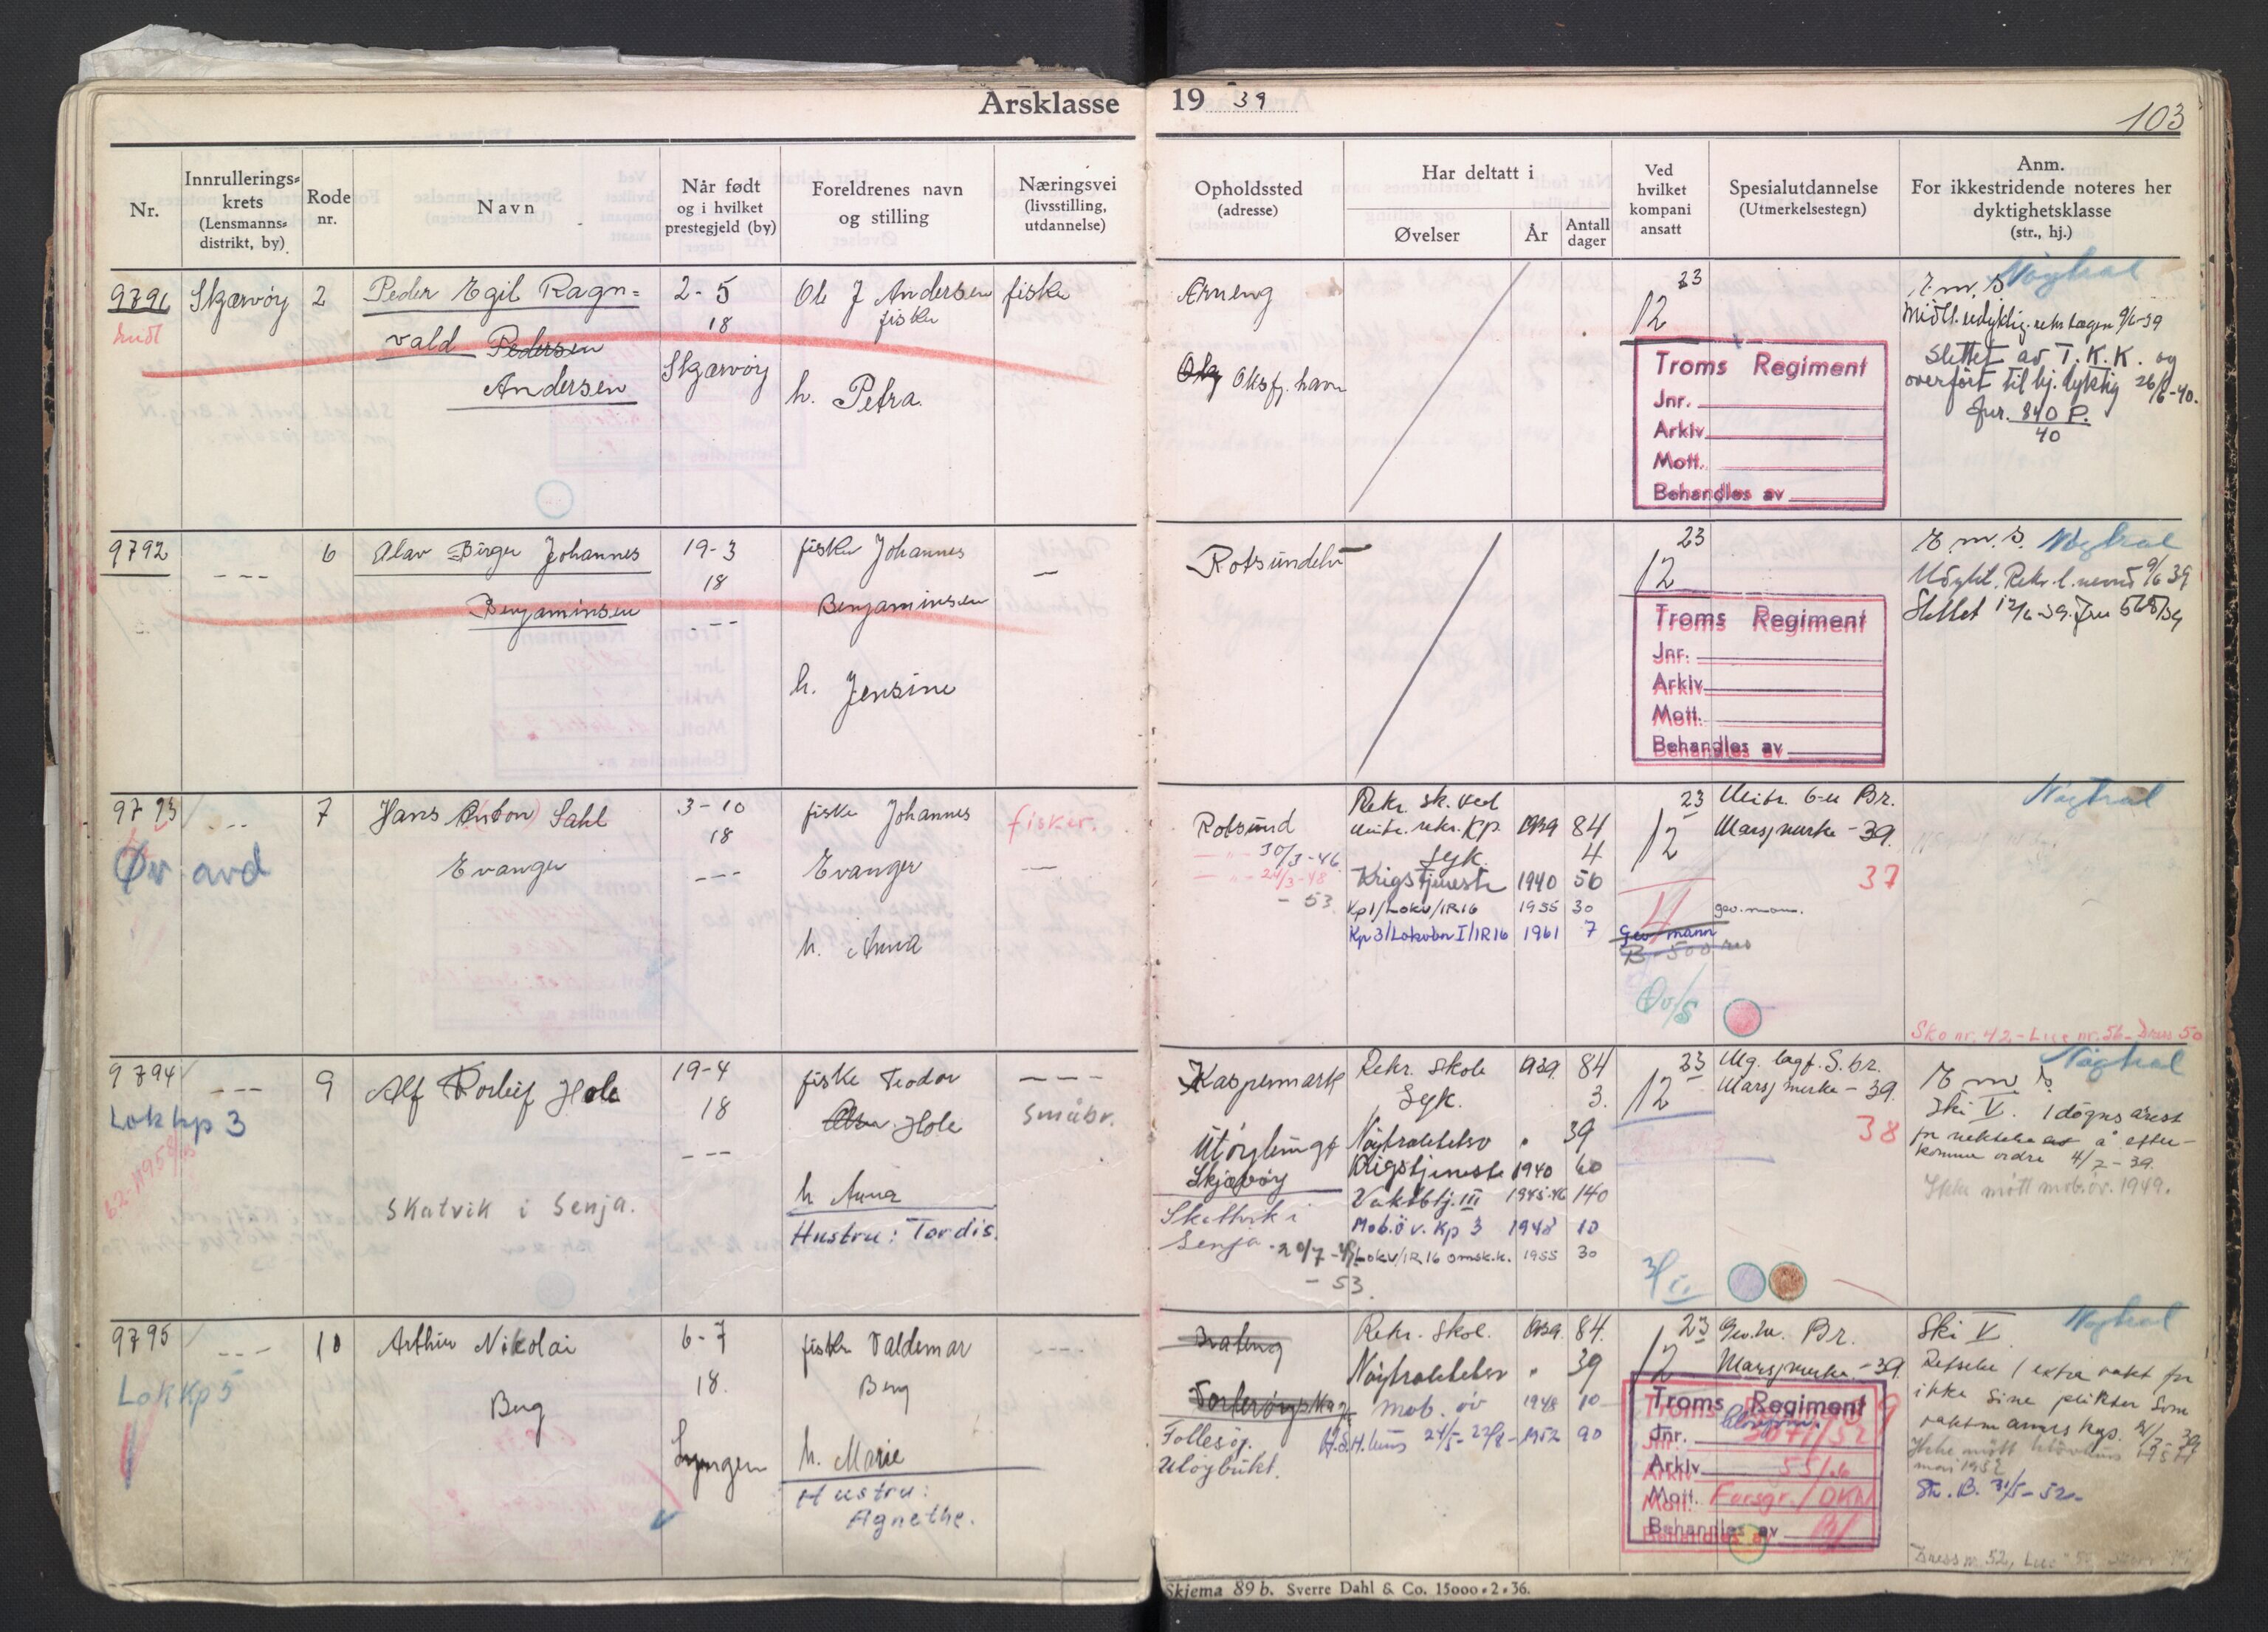 Årsklasse 19 39
103
Nr.
Innrullerings-
krets
(Lensmanns-
distrikt, by)
Rode
nr.
Navn
Når født
og i hvilket
prestegjeld (by)
Foreldrenes navn
og stilling
Næringsvei
(livsstilling,
utdannelse)
Opholdssted
(adresse)
Har deltatt i
Øvelser
År
Antall
dager
Ved
hvilket
kompani
ansatt
Spesialutdannelse
(Utmerkelsestegn)
Anm.
For ikkestridende noteres her
dyktighetsklasse
(str., hj.)
9791 Skjærvøy 2 Peder Egil Ragn-
vald Pedersen
Andersen
2-5
18
Skjærvøy
Ole J Andersen
fisker
h. Petra.
fisker
Årneng
Oksfj. havn
23
12
Troms Regiment
Jnr.
Arkiv
Mott.
Behandles av
Nøytral
E. m. s.
Slettet av T. K. K. og
overført til hj. dyktig 26/6-40.
Jnr. 840 P.
40
9792 --- 6 Olav Birger Johannes
Benjaminsen
19-3
18
---
fisker Johannes
Benjaminsen
h. Jensine
—
Rotsundelv
23
12
Troms Regiment
Jnr.
Arkiv
Mott.
Behandles av
E. m. s. Nøytral
Udykt. Rekr. l. nevnd 9/6 39
Slettet 12/6-39. Jnr 568/39
9793 --- 7 Hans Anton Sahl
Evanger
Øv avd
3-10
18
---
fisker Johannes
Evanger
h. Anna
fisker.
—
Rotsund
30/3-46
24/3-48
- 53
Rekr. sk. ved
mitr. rekr. Kp. 1939 84
syk. 4
Krigstjeneste 1940 56
Kp1/Lokv/IR16 1955 30
Kp3/Lokvbn I/IR16 1961 7
23
12
4
Gev mann
Øv/S
Mitr. 6-er Br.
Marsjmerke - 39.
37
gev. mann.
Nøytral
Sko nr. 42 - Lue nr. 56 - Dress 50
9794 --- 9 Alf Torleif Hole
Lok kp 3
Skatvik i Senja.
19-4
18
---
fisker Teodor
Hole
h Anna
Hustru: Tordis.
---
småbr.
Kaspermark
Skjærvøy
Skatvik i
Senja 20/7-48
- 53
Rekr. skole 1939. 84
Syk. 3.
Nøytralitetsv " 39
Krigstjeneste 1940 60
Vaktbtj. III 1945-46 140
Mob.öv. Kp 3 1948 10
Lokv/IR16 omsk.k. 1955 30
23
12
Mg. lagf. S. br.
Marsjmerke - 39.
38
Nøytral
E m s
Ski V. 1 døgns arest
for nektelse av å etter-
komme ordre 4/7-39.
Ikke møtt mob.öv. 1949.
9795 --- 10 Arthur Nikolai
Berg
Lok Kp 5
6-7
18.
Lyngen
fisker Valdemar
Berg
h. Marie
Hustru:
Agnethe.
----
Follesøy.
Uløybukt.
Rekr. skol. 1939. 84.
Nøytralitetsv " 39
mob. öv 1948 10
24/5-22/8-1952 90
23
12
Gev.m. Br.
Marsjmerke - 39
Troms Regiment
Jnr.
Arkiv
Mott.
Behandles av
Nøytral
Ski V
Refselse 1 extra vakt for
ikke sine plikter som
mai 1952
Str. B. 31/5-52.
Skjema 89 b. Sverre Dahl & Co. 15000-2-36.